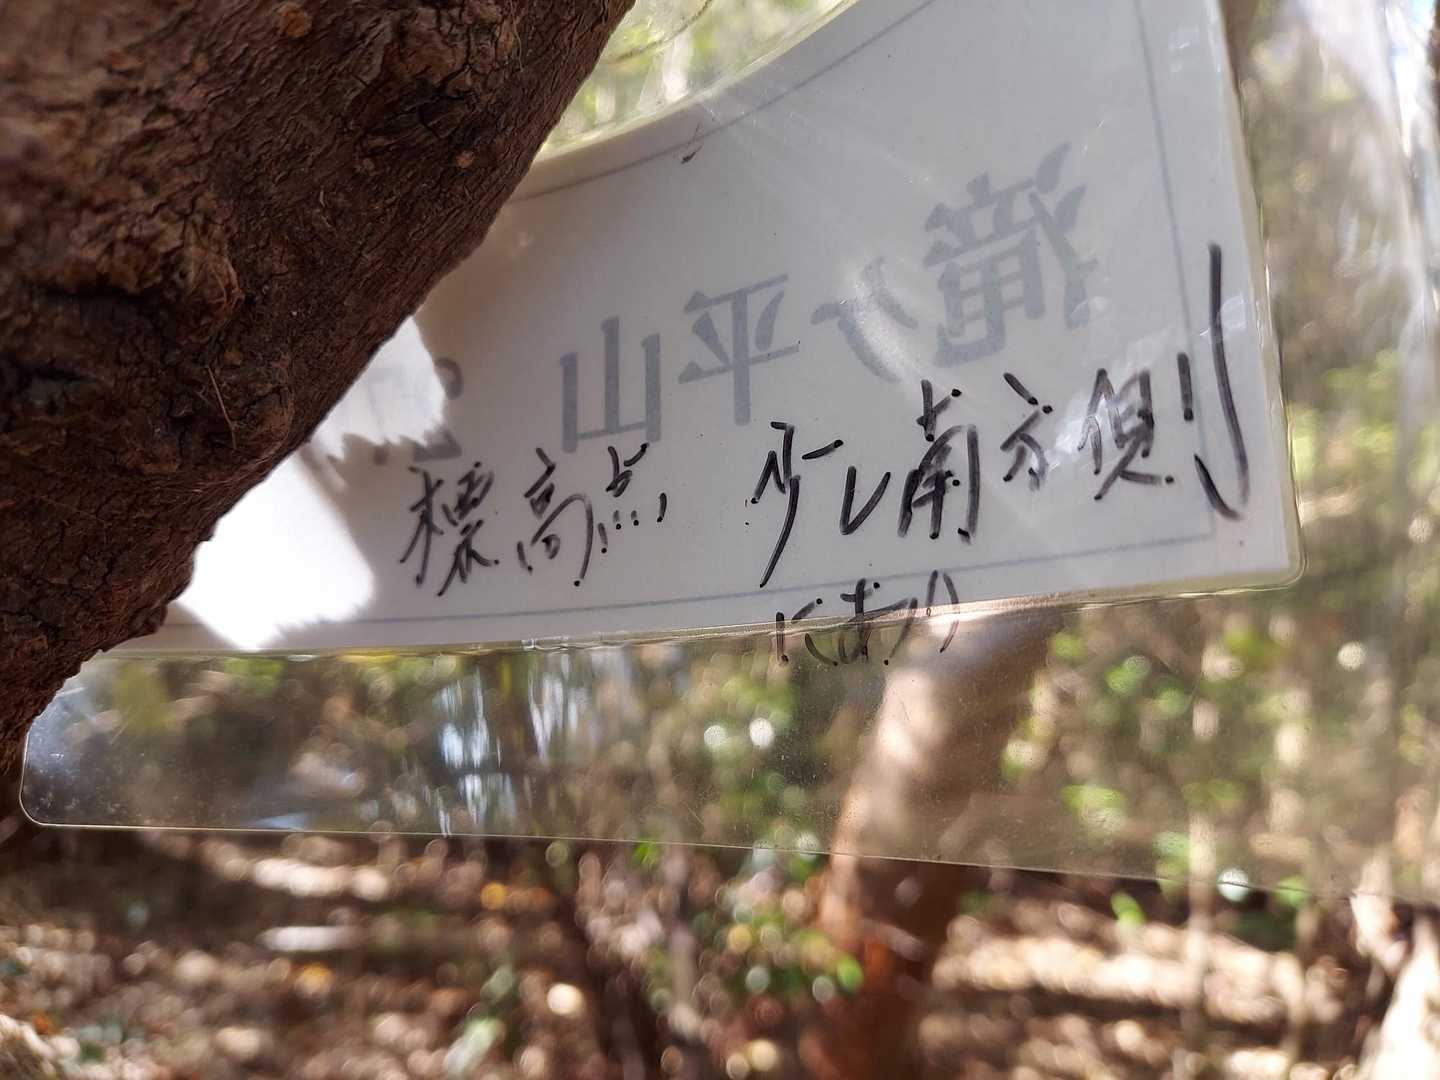 滝ヶ平山
標高点 少し南方側
にあり